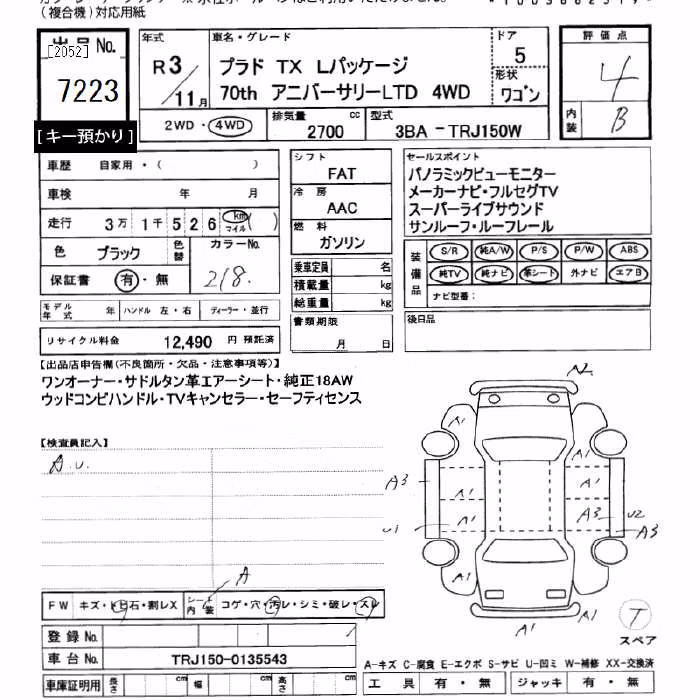 (複合機)対応用紙
出品No.
[2052]
7223
[キー預かり]
年式
R3/11月
車名・グレード
プラド TX Lパッケージ
70th アニバーサリーLTD 4WD
ドア
5
形状
ワゴン
評価点
4
内装
B
2WD・4WD
排気量
2700 cc
型式
3BA-TRJ150W
車歴 自家用・( )
車検 年 月
走行 3万1千526 km マイル ( )
色 ブラック
色替
カラーNo.
218
保証書 有・無
モデル年式 年
ハンドル 左・右
ディーラー・並行
リサイクル料金 12,490 円 預託済
シフト
FAT
冷房
AAC
燃料
ガソリン
乗車定員 名
積載量 kg
総重量 kg
書類期限
月 日
セールスポイント
パノラミックビューモニター
メーカーナビ・フルセグTV
スーパーライブサウンド
サンルーフ・ルーフレール
装備品
S/R 純A/W P/S P/W ABS
純TV 純ナビ 革シート 外ナビ エアB
ナビ型番:
後日品
【出品店申告欄(不良箇所・欠品・注意事項等)】
ワンオーナー・サドルタン革エアーシート・純正18AW
ウッドコンビハンドル・TVキャンセラー・セーフティセンス
【検査員記入】
A.U.
A2
A1
A1 A1
A3
A1
A1 A1 A3 U2
U1 A3
A1 A1
A1 A1
T
スペア
A
FW キズ・トビ石・割レX
シート内装 コゲ・穴・汚レ・シミ・破レ・スレ
登録No.
車台No. TRJ150-0135543
車庫証明用 長さ cm 幅 cm 高さ cm
A-キズ C-腐食 E-エクボ S-サビ U-凹ミ W-補修 XX-交換済
工具 有・無 ジャッキ 有・無